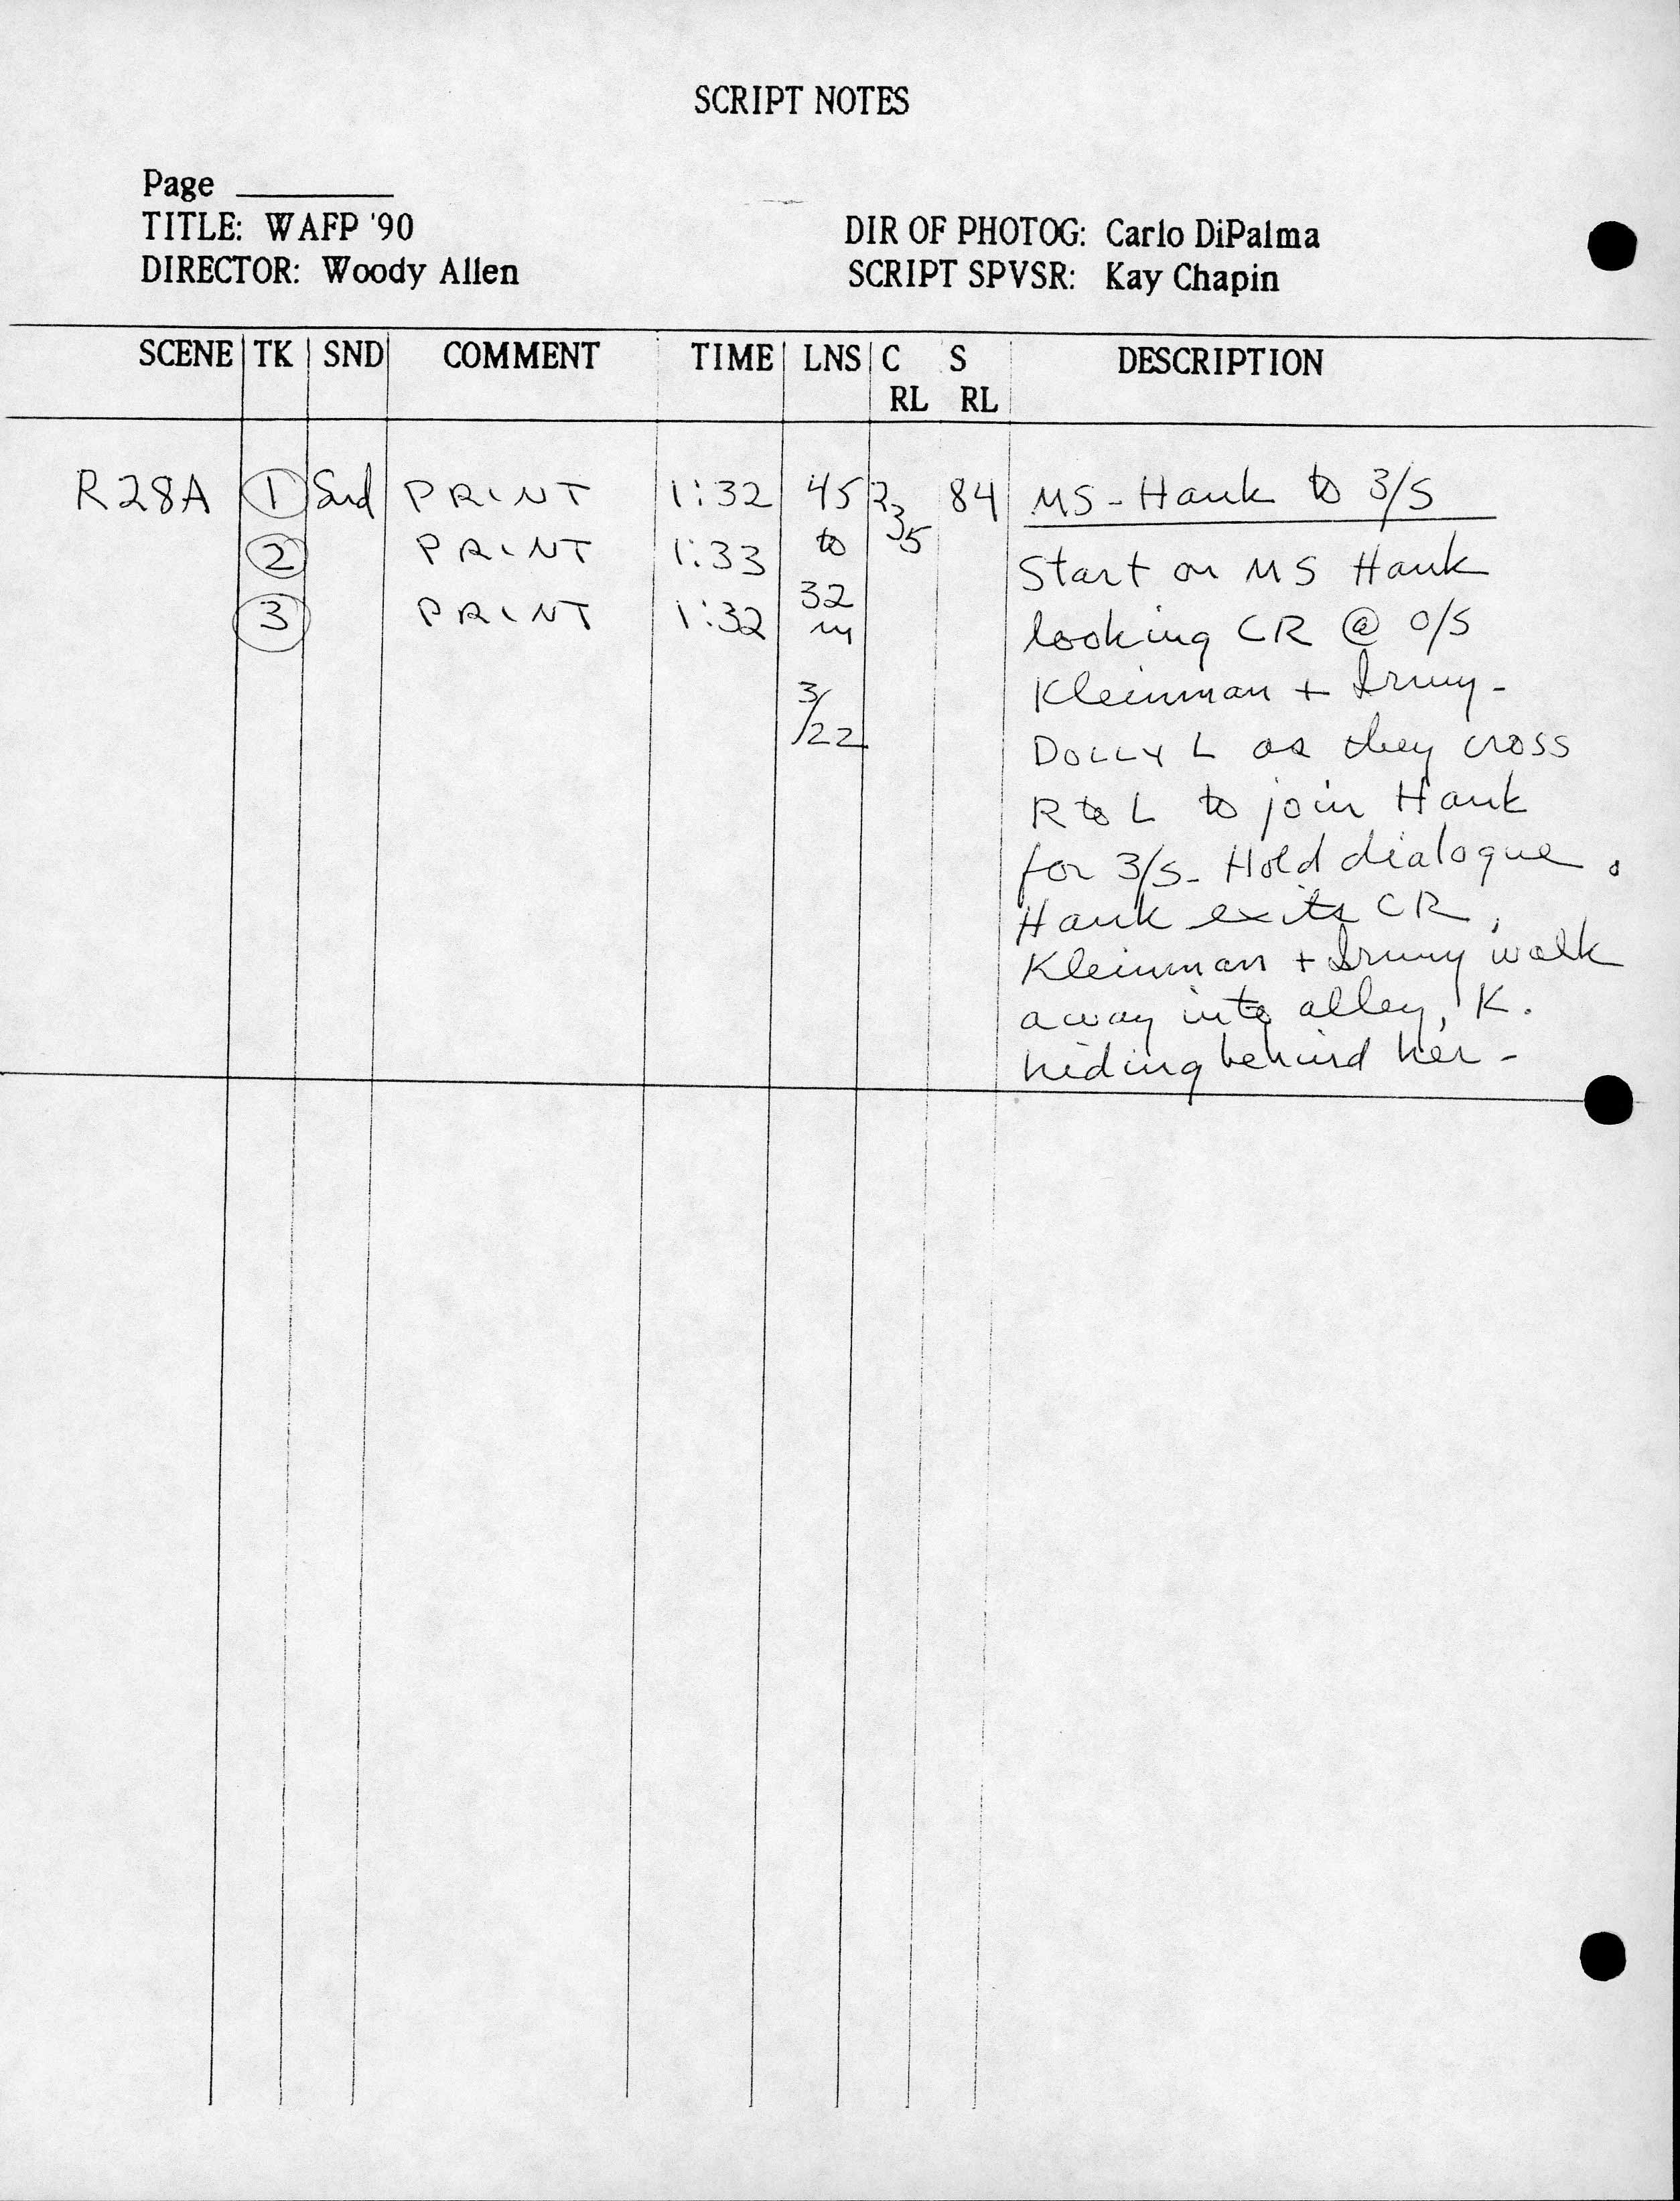 SCRIPT NOTES
Page
TITLE: WAFP '90
DIR OF PHOTOG: Carlo DiPalma
DIRECTOR: Woody Allen
SCRIPT SPVSR: Kay Chapin
SCENE TK SND COMMENT TIME LNS C RL S RL DESCRIPTION
R28A 1 Snd PRINT 1:32 45 84 MS - Hank to 3/S
2 PRINT 1:33 to 35 Start on MS Hank
3 PRINT 1:32 32 looking CR @ O/S
Kleinman + Irmy -
3/22 DOLLY L as they cross
R to L to join Hank
for 3/S - Hold dialogue.
Hank exits CR,
Kleinman + Irmy walk
away into alley, K.
hiding behind her -